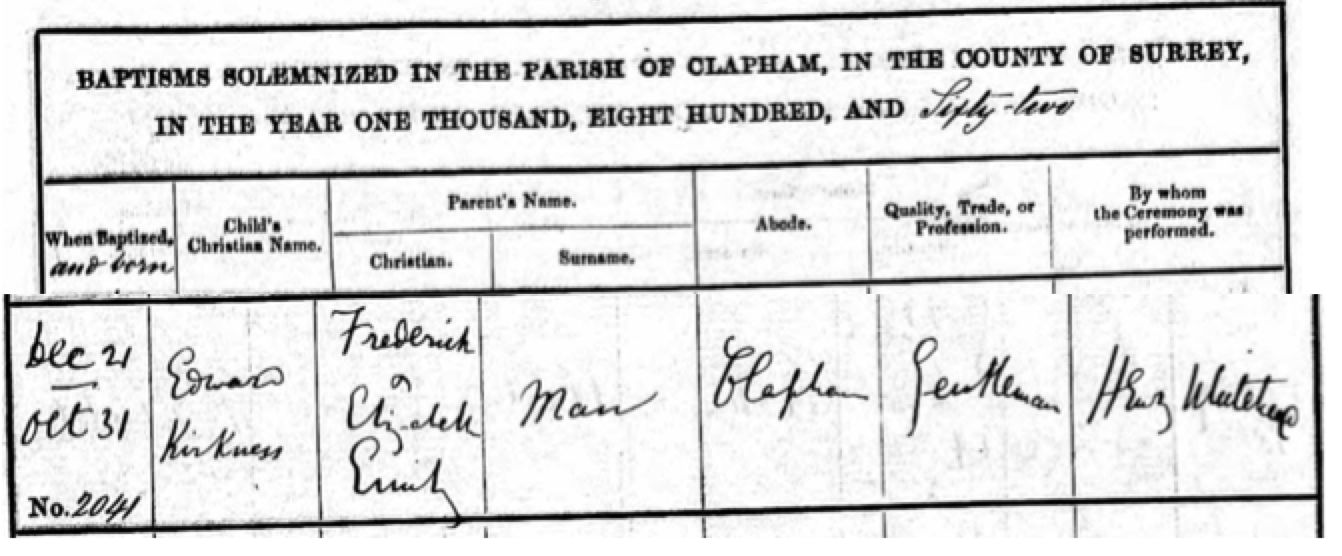 BAPTISMS SOLEMNIZED IN THE PARISH OF CLAPHAM, IN THE COUNTY OF SURREY,
IN THE YEAR ONE THOUSAND, EIGHT HUNDRED, AND Sixty-two
When Baptized,
and born
Child's
Christian Name.
Parent's Name.
Christian.
Surname.
Abode.
Quality, Trade, or
Profession.
By whom
the Ceremony was
performed.
Dec 21
Oct 31
No. 2041
Edward
Kirkness
Frederick
&
Elizabeth
Emily
Mann
Clapham
Gentleman
Henry Whitehead